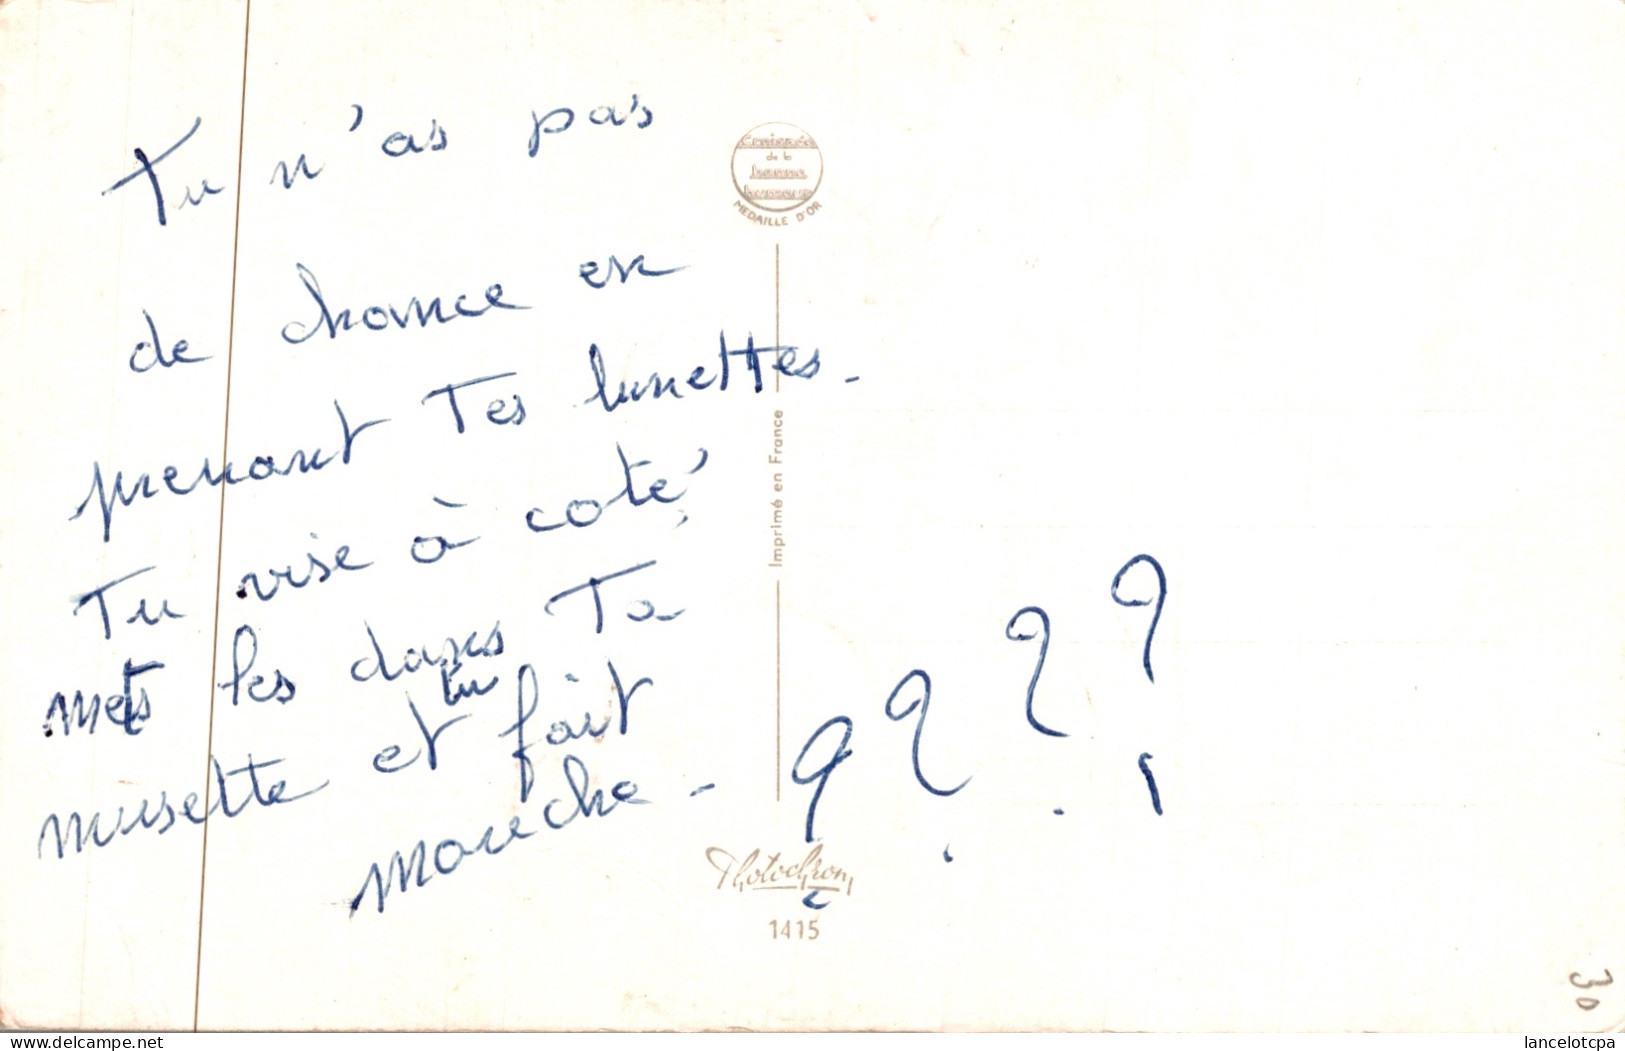 Tu n'as pas
de chance en
prenant Tes lunettes.
Tu vise à coté
mets les dans Ta
musette et tu fait
mouche -
? ? ? ?
MEDAILLE D'OR
Imprimé en France
Photochrom
1415
30
delcampe.net
lancelotcpa